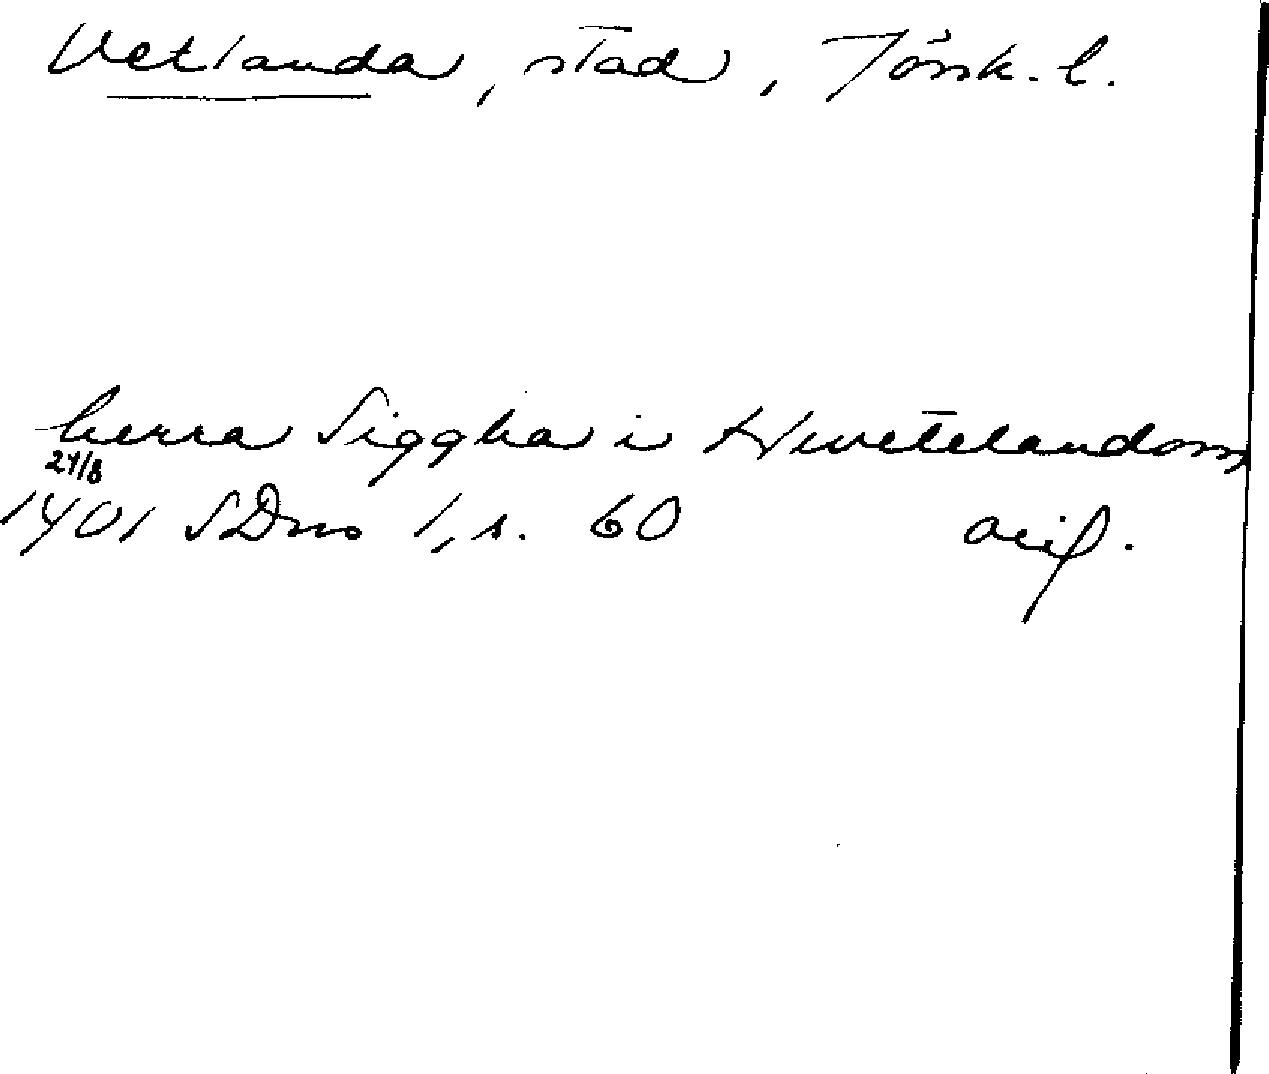 Vetlanda, stad, Jönk. l.
herra Siggha i Hwetelandom
24/8
1401 SDns 1, s. 60 orig.